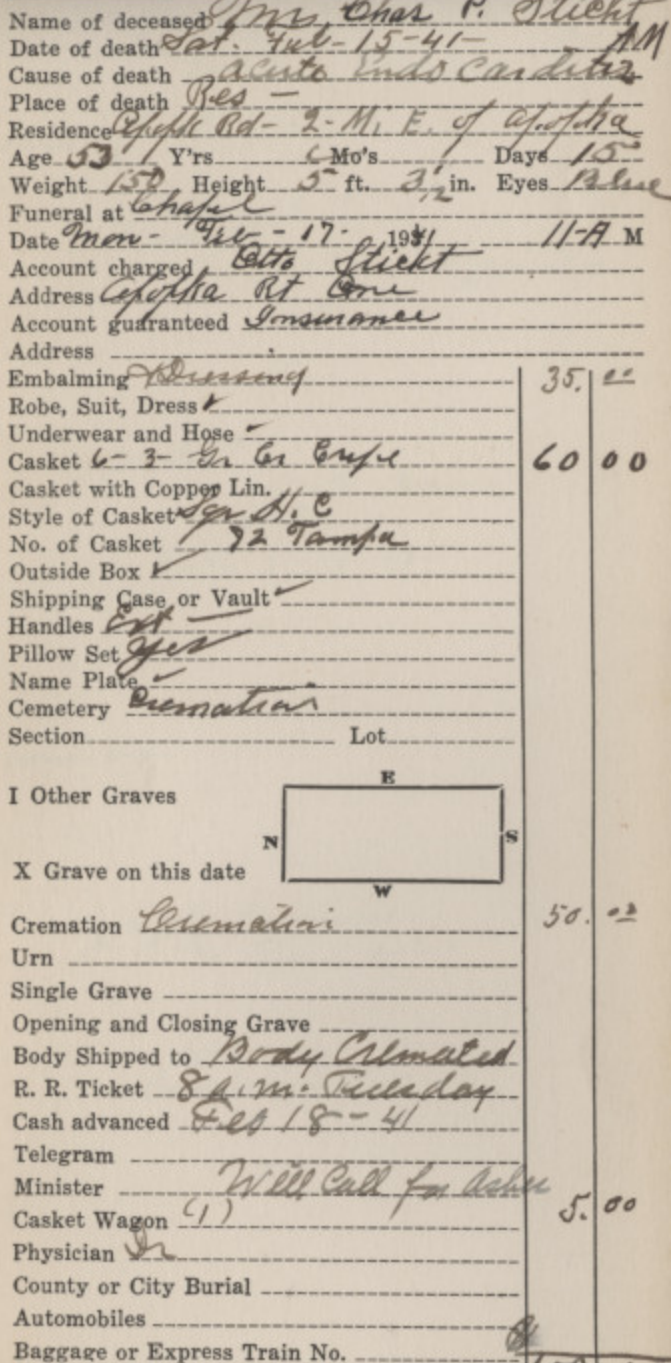 Name of deceased Mrs Chas P. Sticht
Date of death Sat. Feb-15-41- AM
Cause of death acute Endo Carditis
Place of death Res -
Residence Apopk Rd- 2-Mi E. of Apopka
Age 53 Y'rs Mo's Days 15
Weight 150 Height 5 ft. 3 1/2 in. Eyes Blue
Funeral at Chapel
Date Mon- Feb-17- 1941 11-A M
Account charged Otto Sticht
Address Apopka Rt One
Account guaranteed Insurance
Address
Embalming & Dressing 35. 00
Robe, Suit, Dress ✓
Underwear and Hose ✓
Casket 6-3- Gr Cr Crepe 60 00
Casket with Copper Lin.
Style of Casket Sqr H. C
No. of Casket 92 Tampa
Outside Box ✓
Shipping Case or Vault ✓
Handles Ext -
Pillow Set yes
Name Plate ✓
Cemetery Cremation
Section Lot
E
I Other Graves
N S
X Grave on this date
W
Cremation Cremation 50. 00
Urn
Single Grave
Opening and Closing Grave
Body Shipped to Body Cremated
R. R. Ticket 8 a.m. Tuesday
Cash advanced Feb 18-41
Telegram
Minister Will Call for Ashes
Casket Wagon (1) 5. 00
Physician Dr
County or City Burial
Automobiles
Baggage or Express Train No.